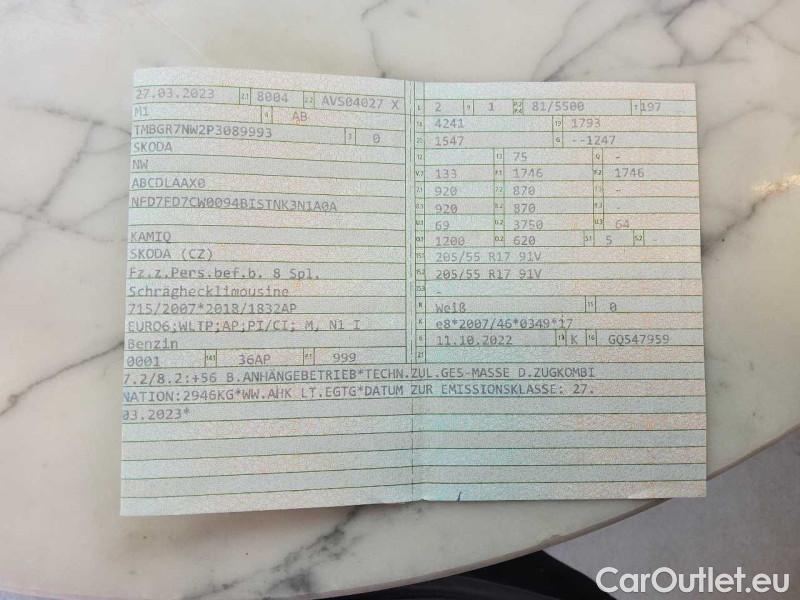 27.03.2023 2.1 8004 2.2 AVS04027 X
M1 AB
TMBGR7NW2P3089993 3 0
SKODA
NW
ABCDLAAX0
NFD7FD7CW0094BISTNK3N1A0A
KAMIQ
SKODA (CZ)
Fz.z.Pers.bef.b. 8 Spl.
Schräghecklimousine
715/2007*2018/1832AP
EURO6;WLTP;AP;PI/CI; M, N1 I
Benzin
0001 14.1 36AP P.1 999
L 2 9 1 P.2 P.4 81/5500 T 197
18 4241 19 1793
20 1547 G --1247
12 - 13 75 Q -
V.7 133 F.1 1746 F.2 1746
7.1 920 7.2 870 7.3 -
8.1 920 8.2 870 8.3 -
U.1 69 U.2 3750 U.3 64
O.1 1200 O.2 620 S.1 5 S.2 -
15.1 205/55 R17 91V
15.2 205/55 R17 91V
15.3 -
R Weiß 11 0
K e8*2007/46*0349*17
6 11.10.2022 17 K 16 GQ547959
21
7.2/8.2:+56 B.ANHÄNGEBETRIEB*TECHN.ZUL.GES-MASSE D.ZUGKOMBI
NATION:2946KG*WW.AHK LT.EGTG*DATUM ZUR EMISSIONSKLASSE: 27.
03.2023*
CarOutlet.eu